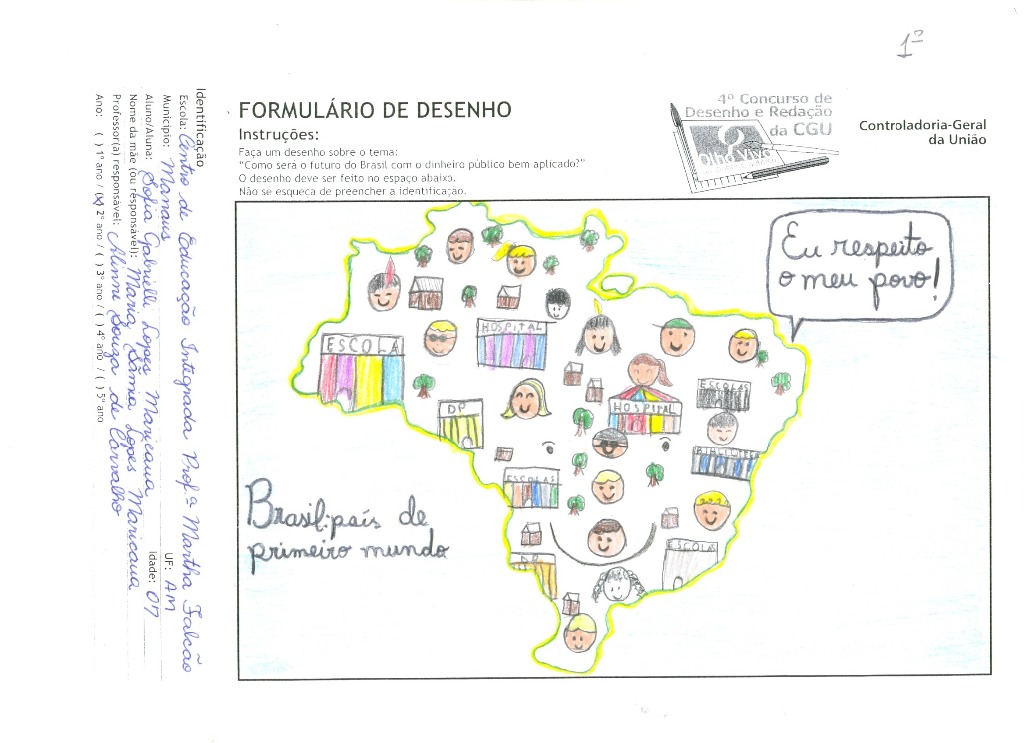 1º
FORMULÁRIO DE DESENHO
Instruções:
Faça um desenho sobre o tema:
"Como será o futuro do Brasil com o dinheiro público bem aplicado?"
O desenho deve ser feito no espaço abaixo.
Não se esqueça de preencher a identificação.
4º Concurso de
Desenho e Redação
da CGU
Olho Vivo
Controladoria-Geral
da União
Identificação
Escola: Centro de Educação Integrada Prof.ª Martha Falcão
Município: Manaus UF: AM
Aluno/Aluna: Sofia Gabrielli Lopes Maricaua Idade: 07
Nome da mãe (ou responsável): Maria Lamia Lopes Maricaua
Professor(a) responsável: Alenni Souza de Carvalho
Ano: ( ) 1º ano / (x) 2º ano / ( ) 3º ano / ( ) 4º ano / ( ) 5º ano
Eu respeito
o meu povo!
ESCOLA
HOSPITAL
DP
HOSPITAL
ESCOLAS
BIBLIOTECA
ESCOLAS
DP
ESCOLA
Brasil: país de
primeiro mundo